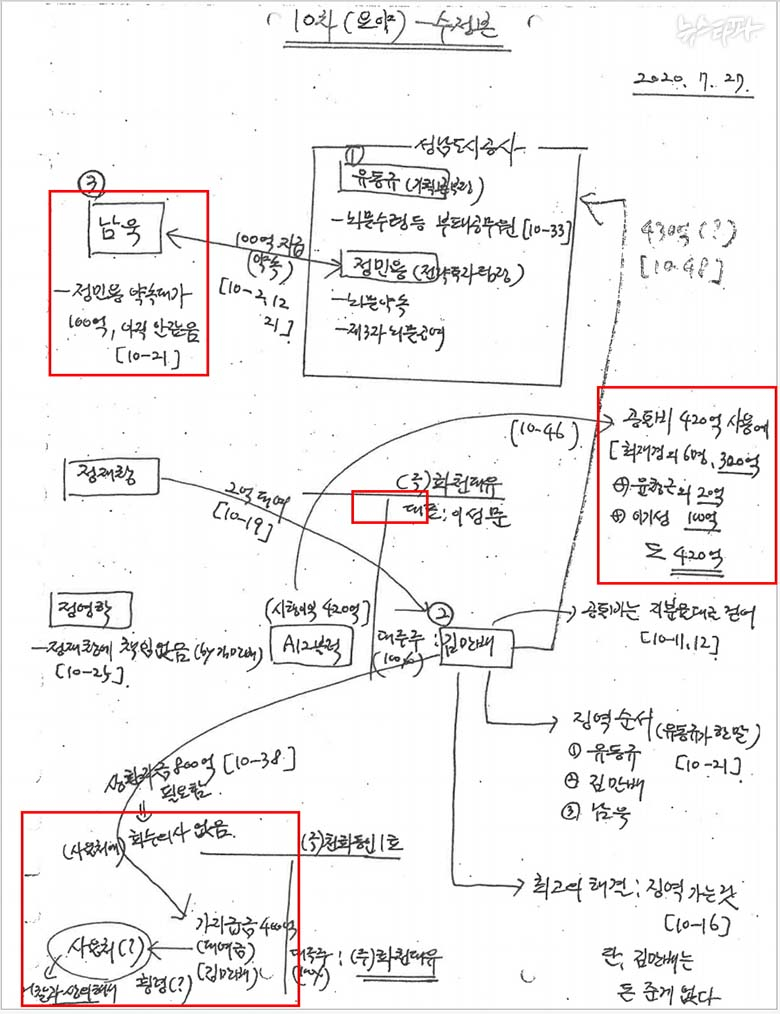 10차 (요약) - 수정본
뉴스타파
2020. 7. 27.
성남도시공사
①
유동규 (기획본부장)
- 뇌물수령 등 부패공무원 [10-33]
정민용 (전략투자팀장)
- 뇌물약속
- 제3자 뇌물공여
③
남욱
- 정민용 약속대가
100억, 아직 안갔음
[10-21]
100억 지급
(약속)
[10-2, 12
21]
430억(?)
[10-48]
[10-46]
공통비 420억 사용에
[최재경외 6명, 300억
⊕ 윤창근외 20억
⊕ 이기성 100억
도 420억
정재창
2억 대여
[10-19]
(주)화천대유
대표: 이성문
정영학
- 정재창에 책임없음 (by 김만배)
[10-25]
420억]
A12블럭
②
대주주 : 김만배
(100%)
공통비는 지분율대로
[10-11, 12]
징역순서 (유동규가 한 말)
① 유동규
② 김만배
③ 남욱
[10-21]
800억 [10-38]
필요함
⇓
(사용처에) 회수의사 없음
(주)천화동인1호
가지급금 4
(대여금)
[김만배]
사용처(?)
횡령(?)
대주주 : (주)화천대유
(100%)
최고의 해결 : 징역 가는 것
[10-16]
단, 김만배는
돈 준게 없다